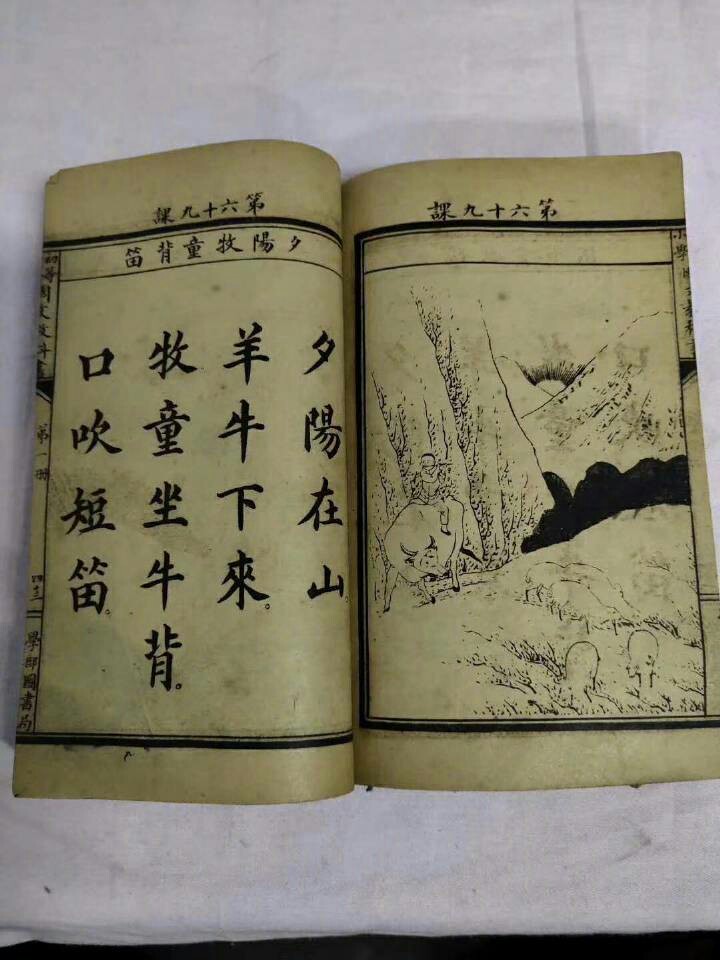 第六十九課
第六十九課
夕陽牧童背笛
夕陽在山。
羊牛下來。
牧童坐牛背。
口吹短笛。
初等國文教科書
第一冊
學部圖書局